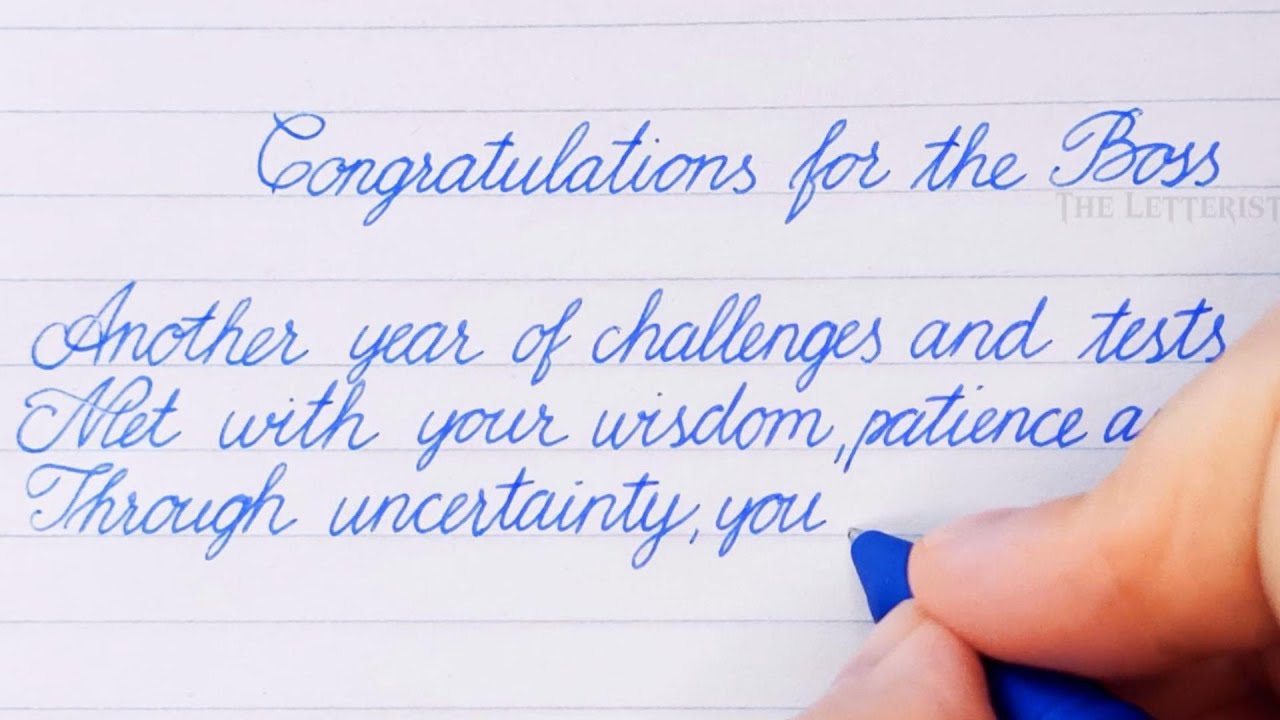 Congratulations for the Boss
THE LETTERIST
Another year of challenges and tests
Met with your wisdom, patience
Through uncertainty, you